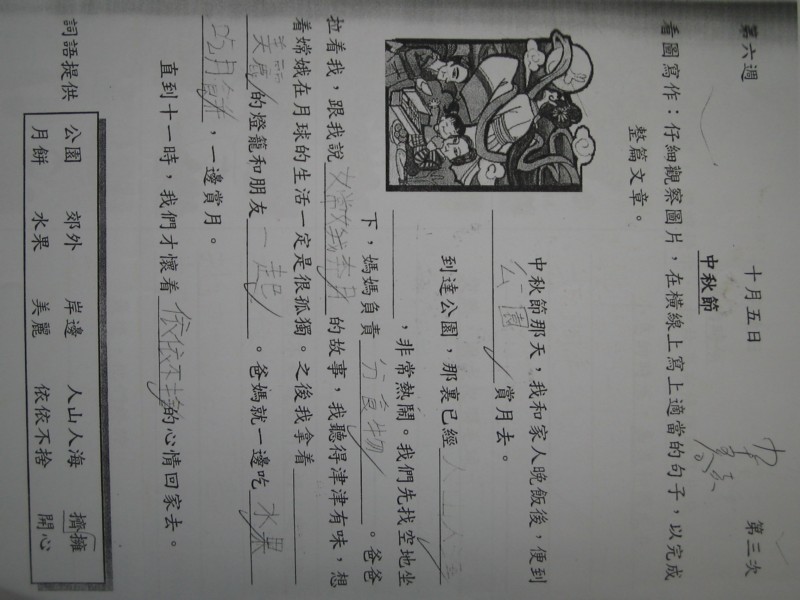 第六週 十月五日 第三次
中秋節
看圖寫作：仔細觀察圖片，在橫線上寫上適當的句子，以完成
整篇文章。
中秋節那天，我和家人晚飯後，便到
公園 賞月去。
到達公園，那裏已經 人山人海
，非常熱鬧。我們先找空地坐
下，媽媽負責 分食物 。爸爸
拉着我，跟我說 奔月 的故事，我聽得津津有味，想
着嫦娥在月球的生活一定是很孤獨。之後我拿着
美麗 的燈籠和朋友 一起 。爸媽就一邊吃 水果
吃月餅 ，一邊賞月。
直到十一時，我們才懷着 依依不捨 的心情回家去。
詞語提供 公園 郊外 岸邊 人山人海 擠擁
月餅 水果 美麗 依依不捨 開心